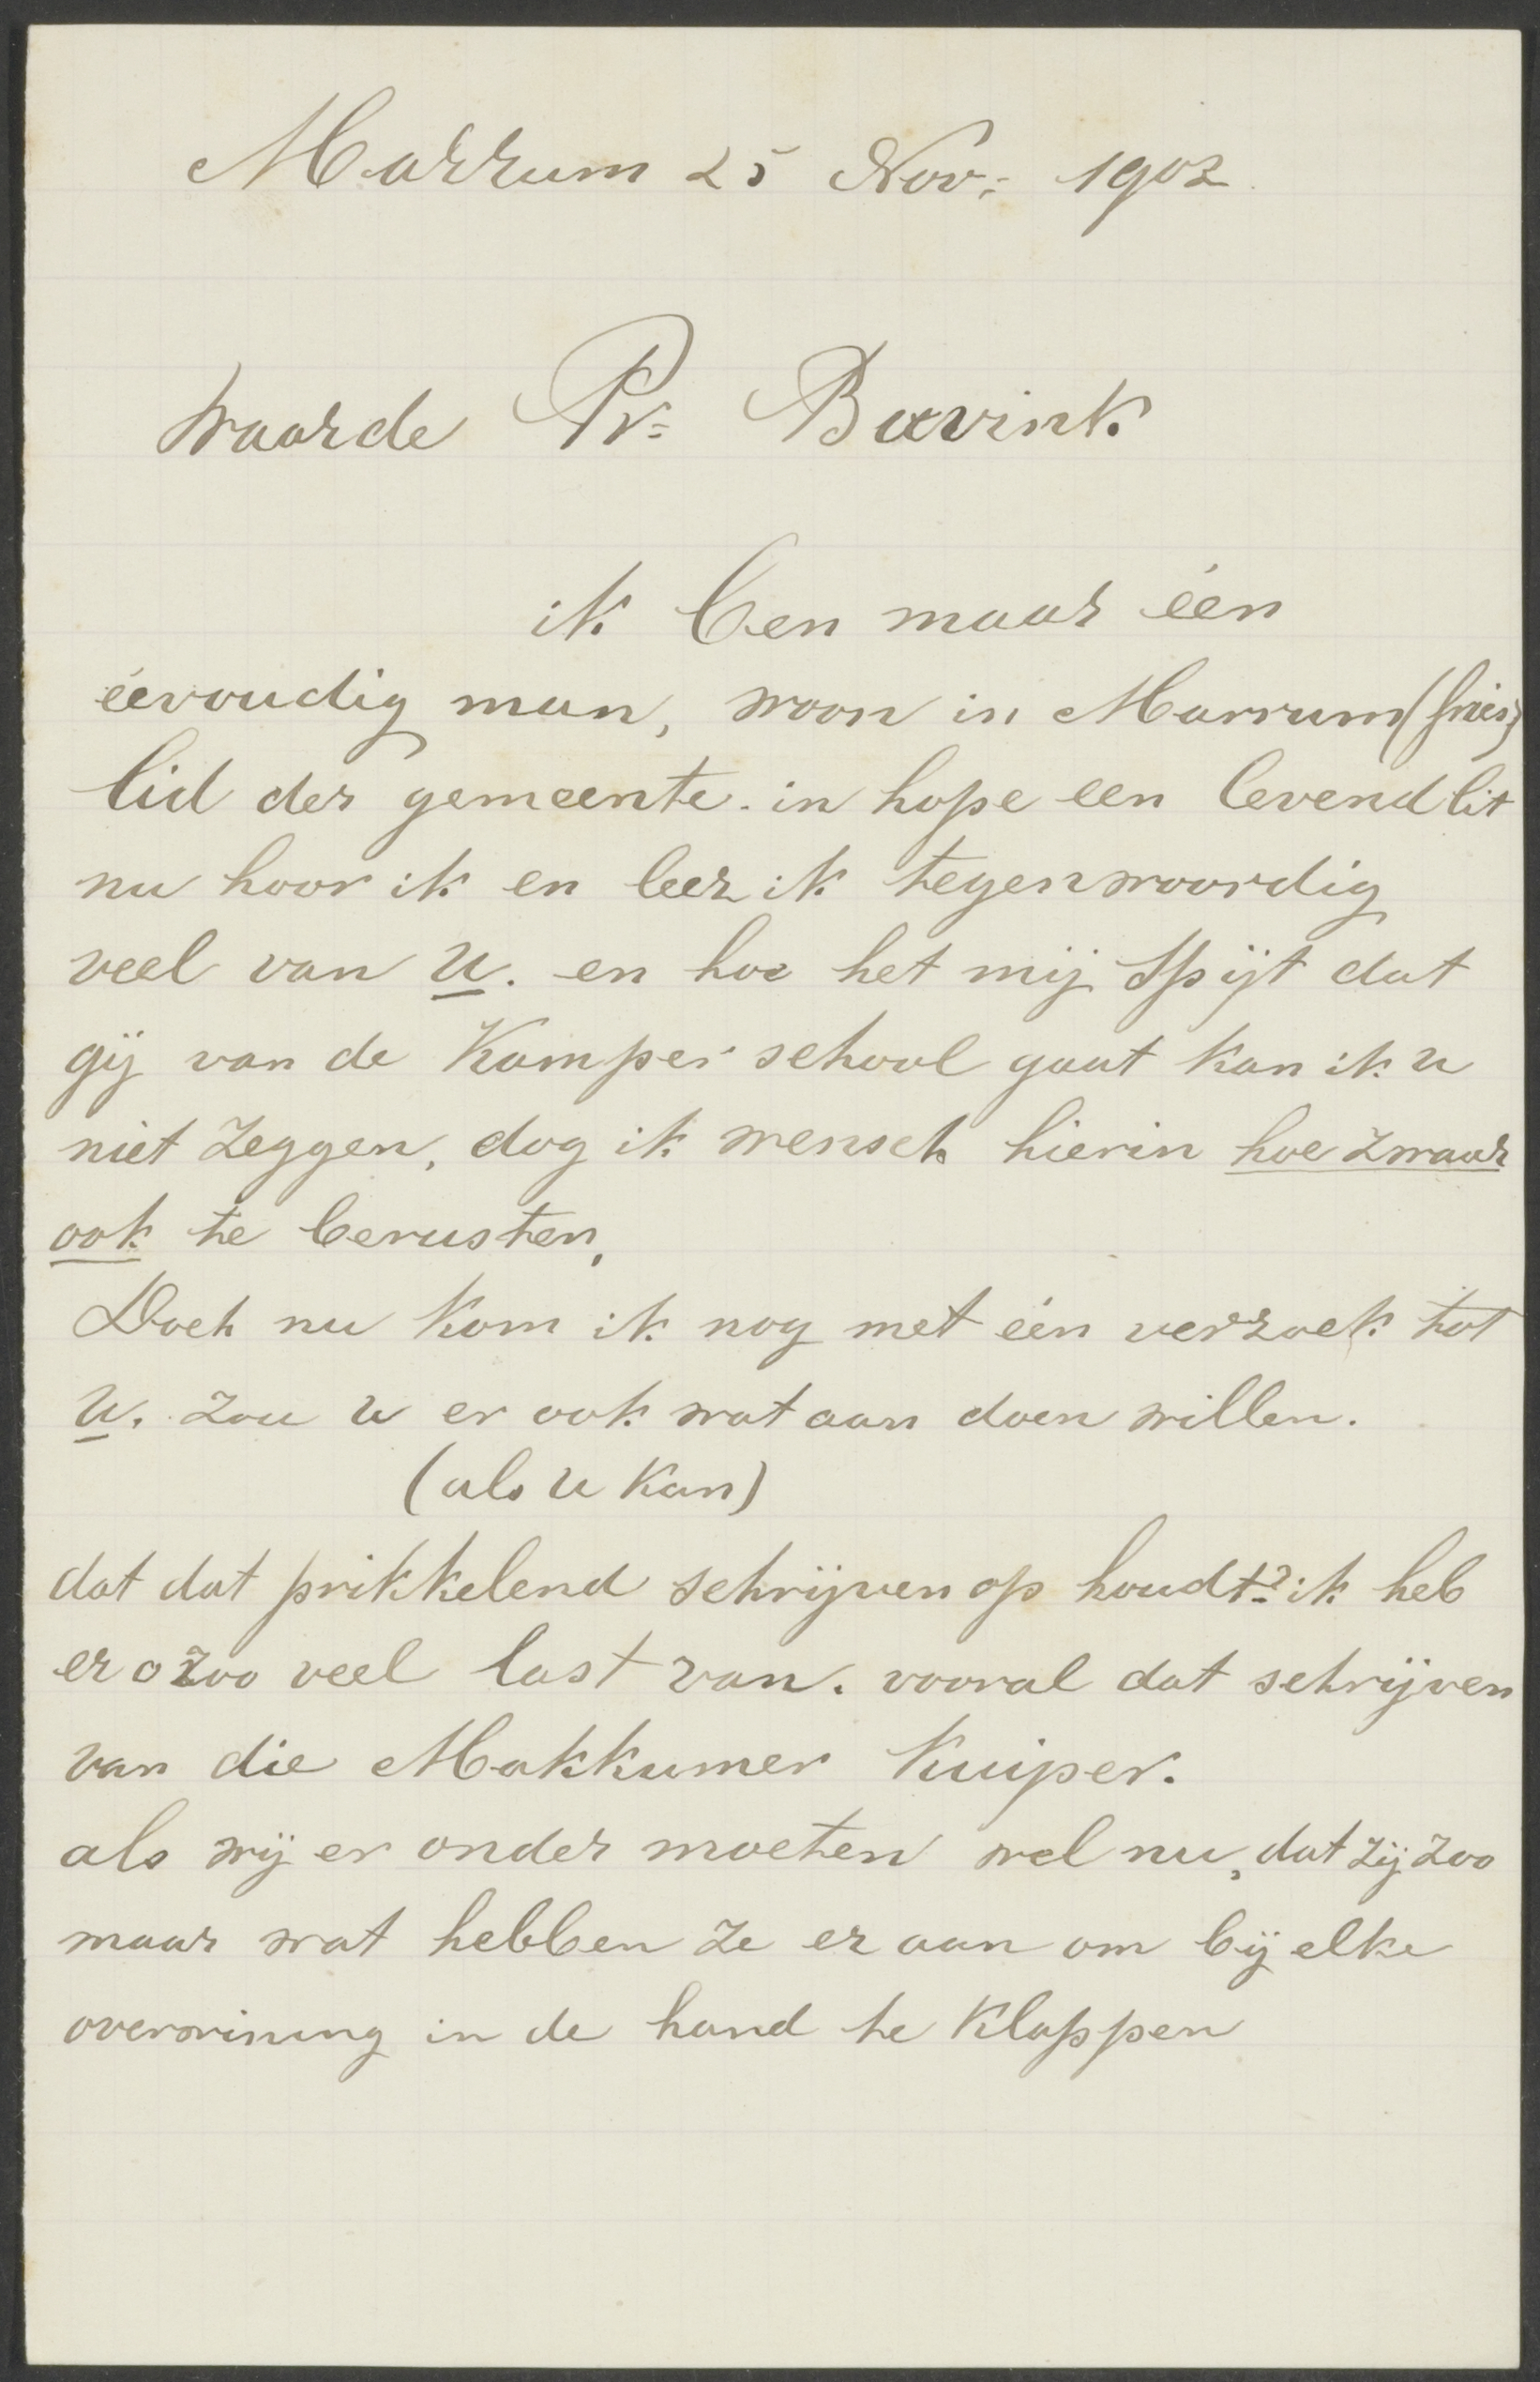 Marrum 25 Nov: 1902
Waarde Pr= Bavink
ik ben maar één
éevoudig man, woon in Marrum (fries)
lid der gemeente. in hope een levend lit
nu hoor ik en leer ik tegenwoordig
veel van U. en hoe het mij Spijt dat
gij van de Kamper school gaat kan ik u
niet zeggen, dog ik wensch hierin hoe zwaar
ook te berusten,
Doch nu kom ik nog met één verzoek tot
U. zou u er ook wat aan doen willen.
(als u kan)
dat dat prikkelend schrijven op houdt? ik heb
er o zoo veel last van. vooral dat schrijven
van die Makkumer Kuiper.
als wij er onder moeten wel nu, dat zij zoo
maar wat hebben ze er aan om bij elke
overwining in de hand te klappen